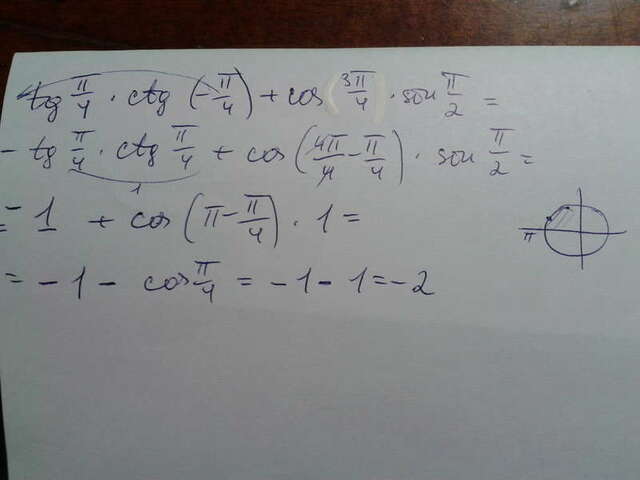 tg π/4 · ctg (-π/4) + cos (3π/4) · sin π/2 =
- tg π/4 · ctg π/4 + cos (4π/4 - π/4) · sin π/2 =
1
= - 1 + cos (π - π/4) · 1 =
π
= - 1 - cos π/4 = - 1 - 1 = - 2